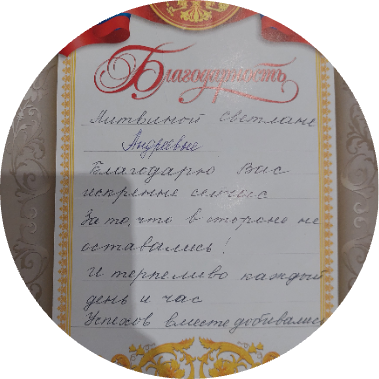 Благодарность
Литвиной Светлане
Андреевне
Благодарю Вас
искренне сейчас
За то, что в стороне не
оставались!
И терпеливо каждый
день и час
Успехов вместе добивались